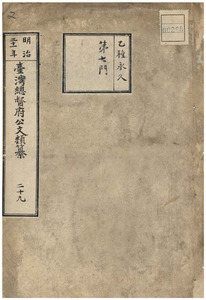 乙種永久
第七門
明治
三十一年
臺灣總督府公文類纂
二十九